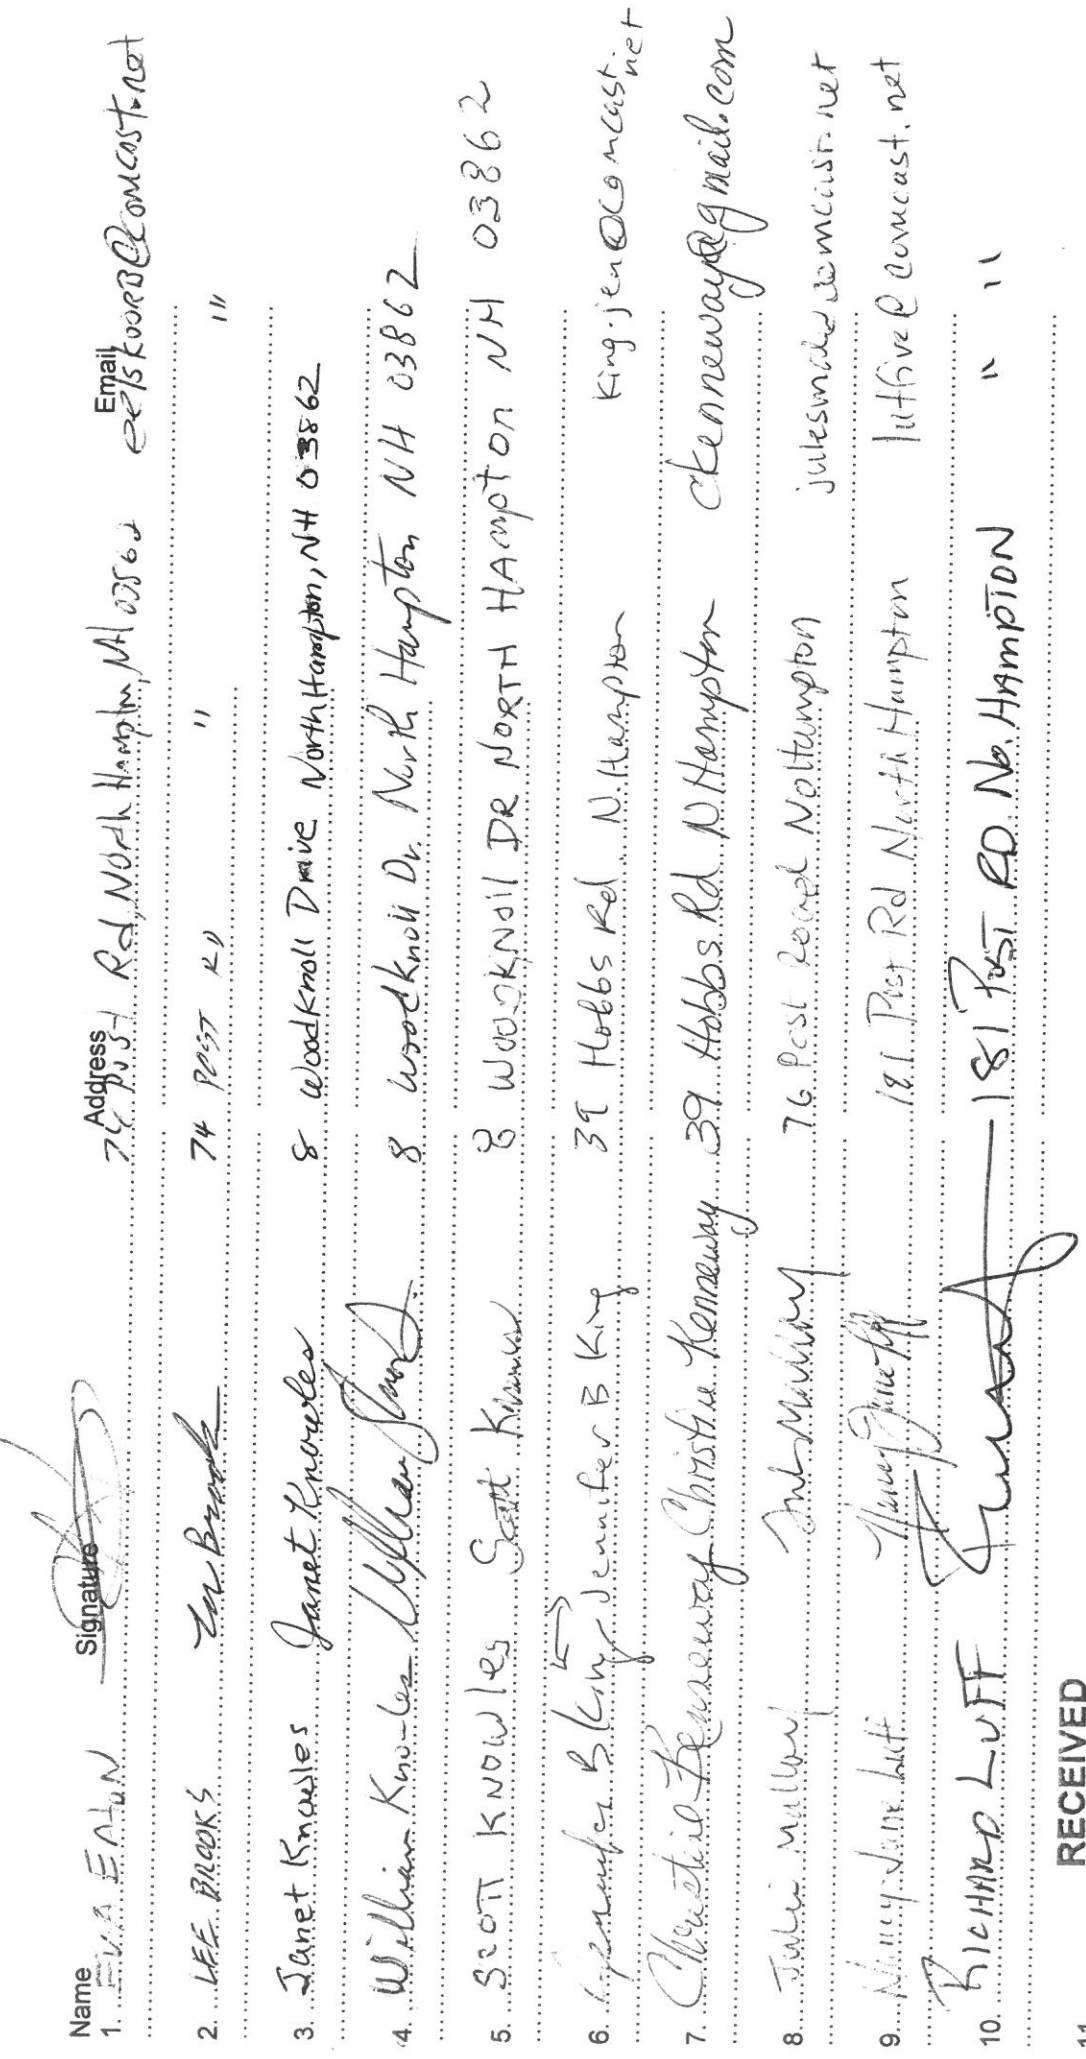 Name Signature Address Email
1. EVA EAtoN 74 Post Rd, North Hampton, NH 03862 eelskoorb@comcast.net
2. LEE BROOKS Lee Brooks 74 POST RD " "
3. Janet Knowles Janet Knowles 8 WoodKnoll Drive North Hampton, NH 03862
4. William Knowles 8 Woodknoll Dr. North Hampton NH 03862
5. SCOTT KNOWles Scott Knowles 8 WOODKNOll DR NORTH HAMptON NH 03862
6. Jennifer B King Jennifer B King 39 Hobbs Rd N. Hampton King-jen@comcast.net
7. Christine Kenneway Christine Kenneway 39 Hobbs Rd N Hampton ckenneway@gmail.com
8. Julie Mallow 76 Post Road No Hampton
9. Nancy Jane Luff 181 Post Rd North Hampton luffive@comcast.net
10. RICHARD LUFF 181 POST RD. No. HAMPTON " "
RECEIVED
11.